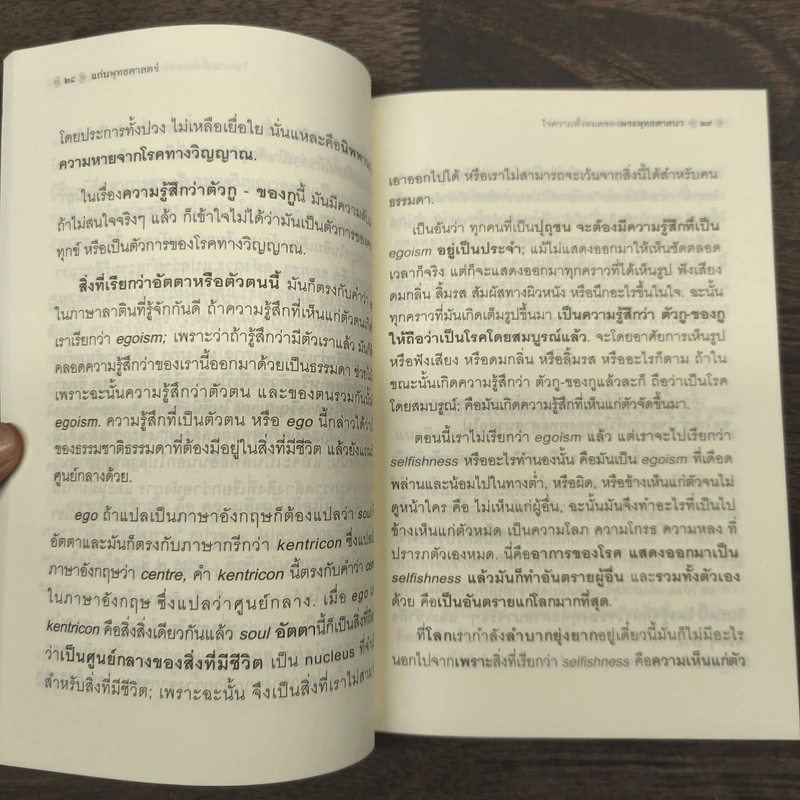 ๒๘ แก่นพุทธศาสตร์
โดยประการทั้งปวง ไม่เหลือเยื่อใย นั่นแหละคือนิพพาน
ความหายจากโรคทางวิญญาณ.
ในเรื่องความรู้สึกว่าตัวกู - ของกูนี้ มันมีความ
ถ้าไม่สนใจจริงๆ แล้ว ก็เข้าใจไม่ได้ว่ามันเป็นตัวการของ
ทุกข์ หรือเป็นตัวการของโรคทางวิญญาณ.
สิ่งที่เรียกว่าอัตตาหรือตัวตนนี้ มันก็ตรงกับคำว่า
ในภาษาลาตินที่รู้จักกันดี ถ้าความรู้สึกที่เห็นแก่ตัวตน
เราเรียกว่า egoism; เพราะว่าถ้ารู้สึกว่ามีตัวเราแล้ว มัน
คลอดความรู้สึกว่าของเรานี้ออกมาด้วยเป็นธรรมดา
เพราะฉะนั้นความรู้สึกว่าตัวตน และของตนรวมกันนั้น
egoism. ความรู้สึกที่เป็นตัวตน หรือ ego นี้กล่าวได้ว่า
ของธรรมชาติธรรมดาที่ต้องมีอยู่ในสิ่งที่มีชีวิต แล้วยัง
ศูนย์กลางด้วย.
ego ถ้าแปลเป็นภาษาอังกฤษก็ต้องแปลว่า soul
อัตตาและมันก็ตรงกับภาษากรีกว่า kentricon ซึ่งแปล
ภาษาอังกฤษว่า centre, คำ kentricon นี้ตรงกับคำว่า
ในภาษาอังกฤษ ซึ่งแปลว่าศูนย์กลาง. เมื่อ ego
kentricon คือสิ่งสิ่งเดียวกันแล้ว soul อัตตานี้ก็เป็นสิ่งที่
ว่าเป็นศูนย์กลางของสิ่งที่มีชีวิต เป็น nucleus ที่
สำหรับสิ่งที่มีชีวิต; เพราะฉะนั้น จึงเป็นสิ่งที่เราไม่
ใจความทั้งหมดของพระพุทธศาสนา ๒๙
เอาออกไปได้ หรือเราไม่สามารถจะเว้นจากสิ่งนี้ได้สำหรับคน
ธรรมดา.
เป็นอันว่า ทุกคนที่เป็นปุถุชน จะต้องมีความรู้สึกที่เป็น
egoism อยู่เป็นประจำ; แม้ไม่แสดงออกมาให้เห็นชัดตลอด
เวลาก็จริง แต่ก็จะแสดงออกมาทุกคราวที่ได้เห็นรูป ฟังเสียง
ดมกลิ่น ลิ้มรส สัมผัสทางผิวหนัง หรือนึกอะไรขึ้นในใจ. ฉะนั้น
ทุกคราวที่มันเกิดเต็มรูปขึ้นมา เป็นความรู้สึกว่า ตัวกู-ของกู
ให้ถือว่าเป็นโรคโดยสมบูรณ์แล้ว. จะโดยอาศัยการเห็นรูป
หรือฟังเสียง หรือดมกลิ่น หรือลิ้มรส หรืออะไรก็ตาม ถ้าใน
ขณะนั้นเกิดความรู้สึกว่า ตัวกู-ของกูแล้วละก็ ถือว่าเป็นโรค
โดยสมบูรณ์; คือมันเกิดความรู้สึกที่เห็นแก่ตัวจัดขึ้นมา.
ตอนนี้เราไม่เรียกว่า egoism แล้ว แต่เราจะไปเรียกว่า
selfishness หรืออะไรทำนองนั้น คือมันเป็น egoism ที่เดือด
พล่านและน้อมไปในทางต่ำ, หรือผิด, หรือข้างเห็นแก่ตัวจนไม่
ดูหน้าใคร คือ ไม่เห็นแก่ผู้อื่น, ฉะนั้นมันจึงทำอะไรที่เป็นไป
ข้างเห็นแก่ตัวหมด เป็นความโลภ ความโกรธ ความหลง ที่
ปรารภตัวเองหมด. นี่คืออาการของโรค แสดงออกมาเป็น
selfishness แล้วมันก็ทำอันตรายผู้อื่น และรวมทั้งตัวเอง
ด้วย คือเป็นอันตรายแก่โลกมากที่สุด.
ที่โลกเรากำลังลำบากยุ่งยากอยู่เดี๋ยวนี้มันก็ไม่มีอะไร
นอกไปจากเพราะสิ่งที่เรียกว่า selfishness คือความเห็นแก่ตัว